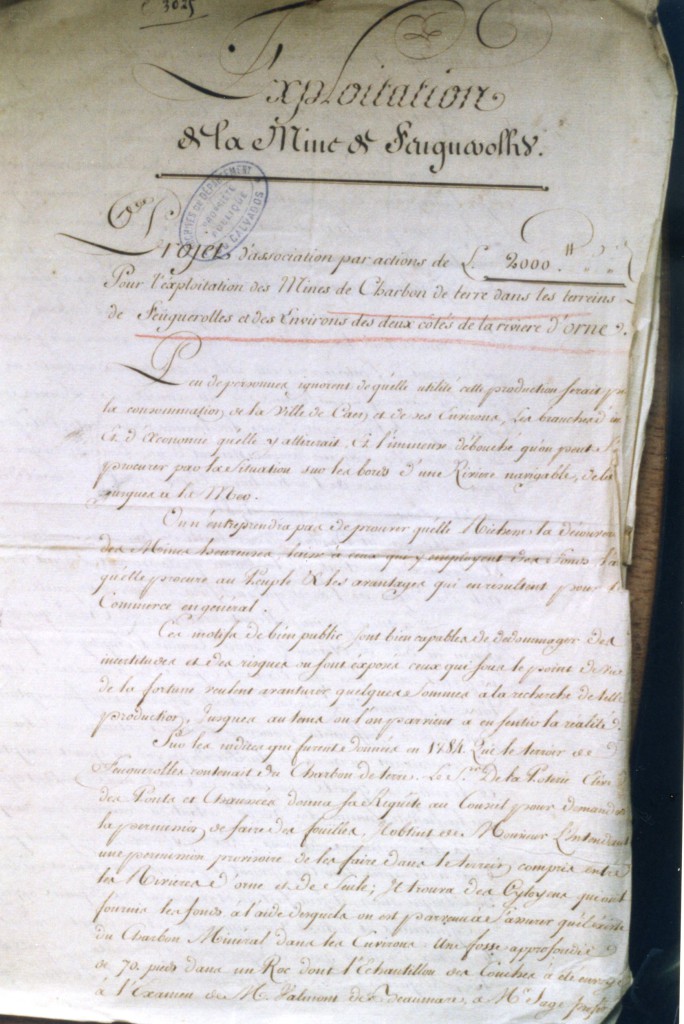 3025
L'Exploitation
de la Mine de Feuguerolles.
ARCHIVES DU DÉPARTEMENT
PROPRIÉTÉ
PUBLIQUE
CALVADOS
Projet d'association par actions de £. 2000.
Pour l'exploitation des Mines de Charbon de terre dans les terreins
de Feuguerolles et des Environs des deux côtés de la riviere d'orne.
Peu de personnes ignorent de quelle utilité cette production serait
la consommation de la Ville de Caen et de ses Environs, Les branches
Et d'Economie qu'elle y attirerait, Et l'immense débouché qu'on peut
procurer par la Situation sur les bords d'une Riviere navigable,
jusques à la Mer.
On n'entreprendra pas de prouver qu'elle Richesse la
des Mines heureuses laisse à ceux que y employent des fonds,
qu'elle procure au Peuple & les avantages qui en résultent pour le
Commerce en général.
Ces motifs de bien public sont bien capables de dedommager des
incertitudes et des risques ou sont exposés ceux qui sous le point de vue
de la fortune veulent avanturer quelques Sommes à la recherche de telle
production, Jusques au tems ou l'on parvient à en sentir la réalité.
Sur les indices qui furent données en 1784. Que le terroir de
Feuguerolles contenait du Charbon de terre. Le Sr. De la Poterie
des Ponts et Chaussées donna sa Requête au Conseil pour demander
la permission de faire des fouilles, Il obtint de Monsieur L'Intendant
une permission provisoire de les faire dans le terrein compris entre
les Rivieres d'orne et de Seule; Il trouva des Cytoyens qui ont
fournis les fonds à l'aide desquels on est parvenu à s'assurer qu'il existe
du Charbon Minéral dans les Environs. Une fosse approfondie
de 70. pieds dans un Roc dont l'Echantillon des Couches a été envoyé
à l'Examen de M. Valmont de Beaumare, à Mr. Sage